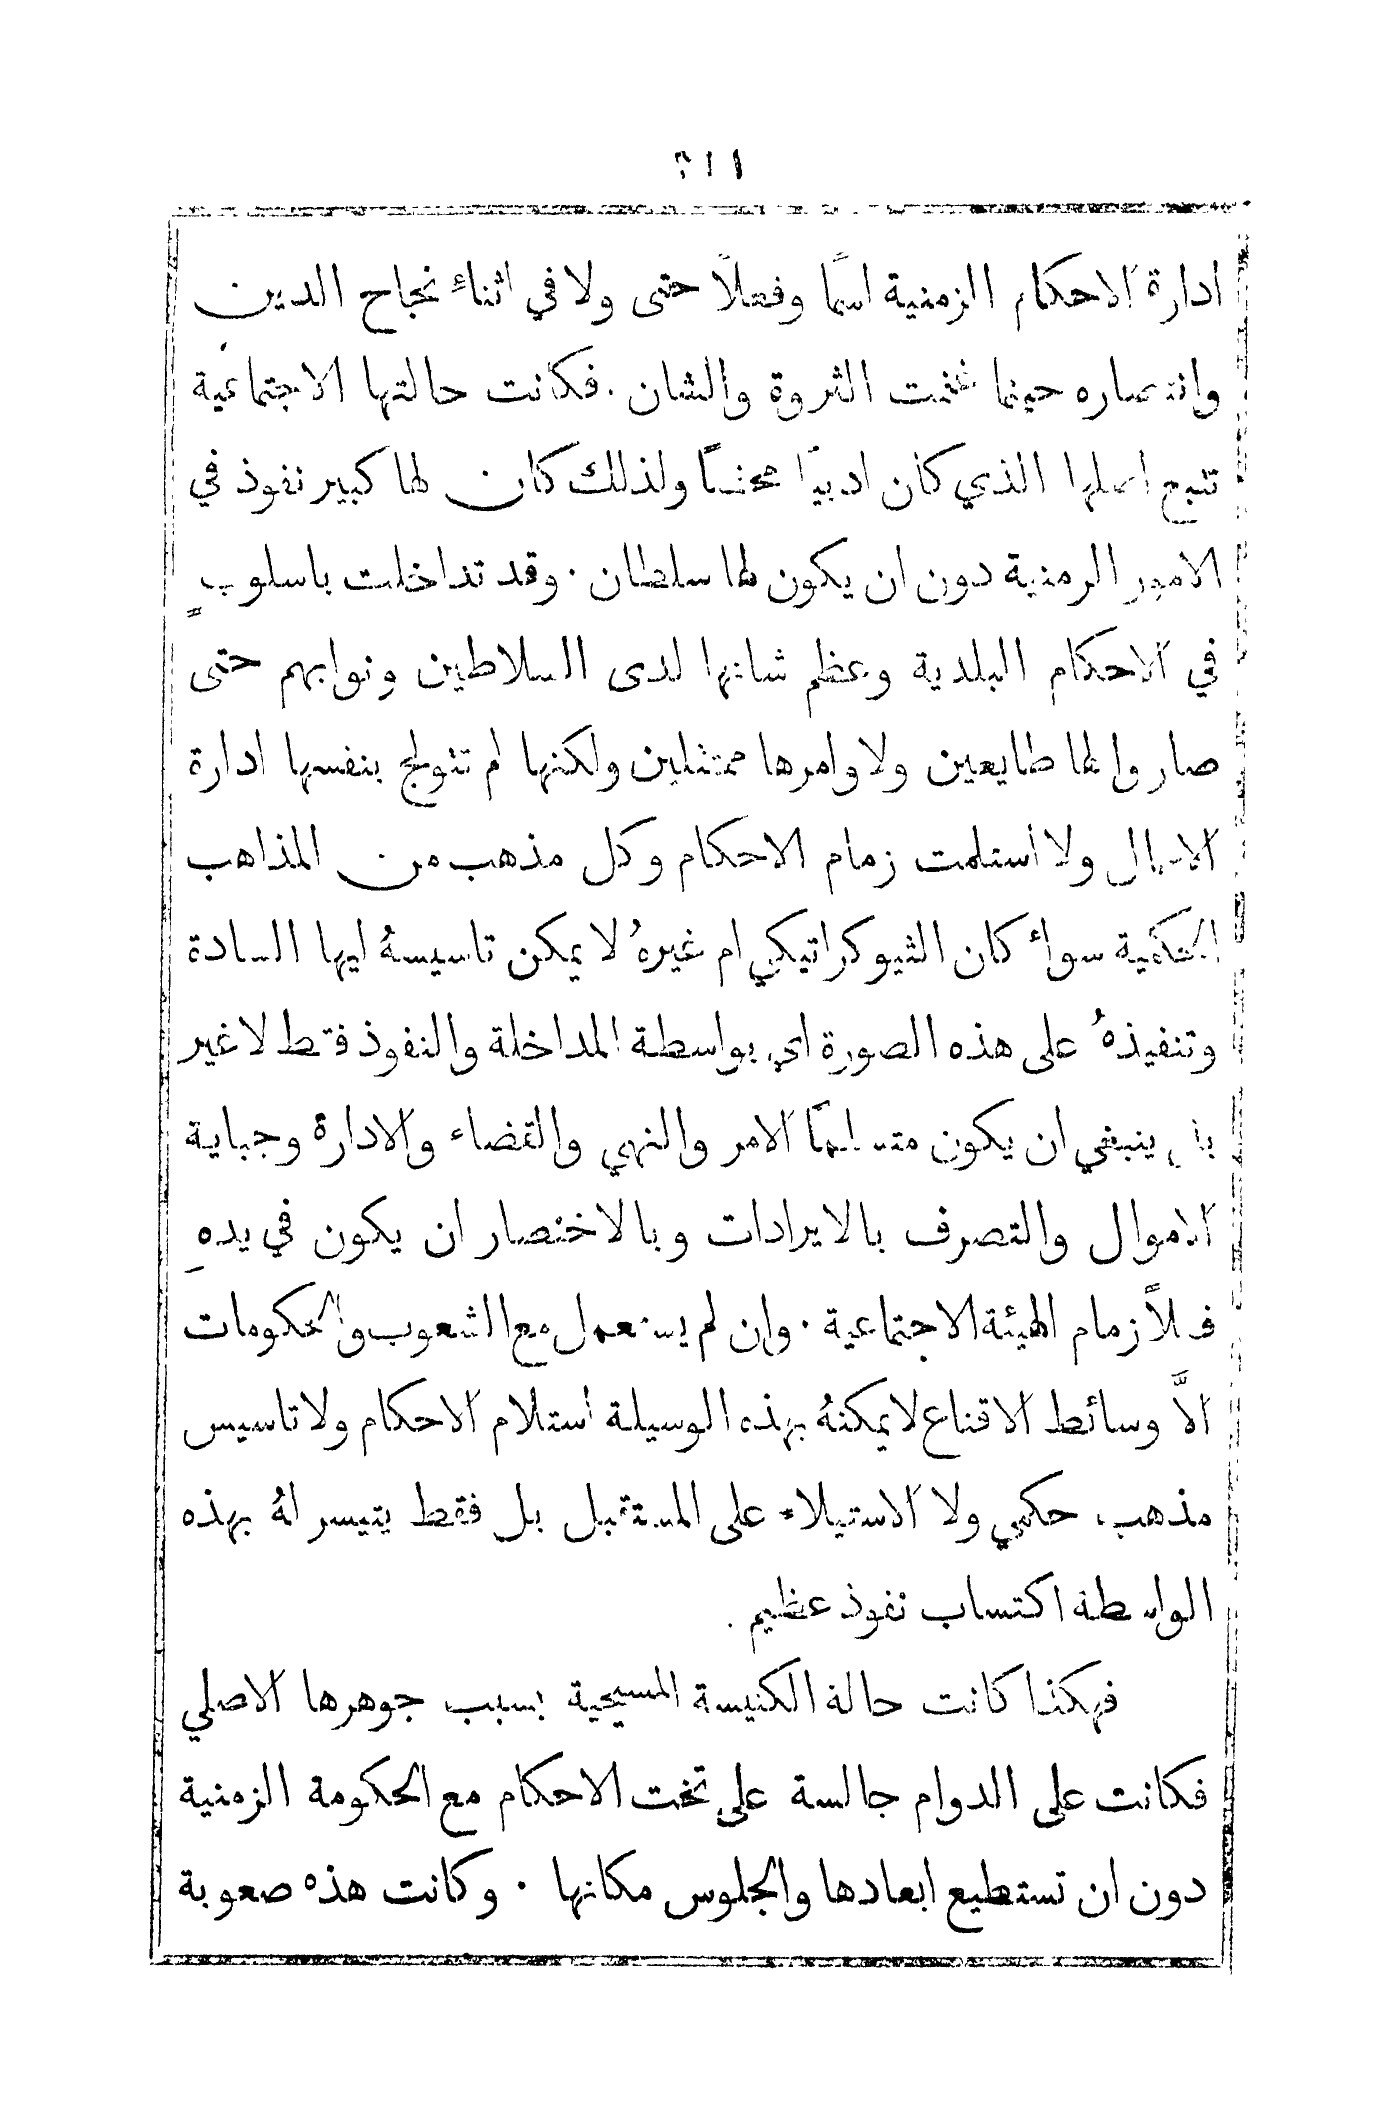 ادارة الاحكام الزمنية اسمًا وفعلاً حتى ولا في اثناء نجاح الدين
وانتصاره حينما غنمت الثروة والشان . فكانت حالتها الاجتماعية
تتبع اصلها الذي كان ادبيًا محضًا ولذلك كان لها كبير نفوذ في
الامور الزمنية دون ان يكون لها سلطان . وقد تداخلت باسلوبٍ
في الاحكام البلدية وعظم شانها لدى السلاطين ونوابهم حتى
صاروا لها طايعين ولاوامرها ممتثلين ولكنها لم تتولج بنفسها ادارة
ولا أستلمت زمام الاحكام وكل مذهب من المذاهب
الحكمية سواء كان الثيوكراتيكي ام غيرهُ لا يمكن تاسيسهُ ايها السادة
وتنفيذهُ على هذه الصورة اي بواسطة المداخلة والنفوذ فقط لا غير
بل ينبغي ان يكون متسلمًا الامر والنهي والقضاء والادارة وجباية
الاموال والتصرف بالايرادات وبالاختصار ان يكون في يدهِ
فعلاً زمام الهيئة الاجتماعية . وان لم يستعمل مع الشعوب والحكومات
الاَّ وسائط الاقناع لا يمكنهُ بهذه الوسيلة أستلام الاحكام ولا تاسيس
مذهب حكمي ولا الاستيلاء على المستقبل بل فقط يتيسر لهُ بهذه
الواسطة اكتساب نفوذ عظيم .
فهكذا كانت حالة الكنيسة المسيحية بسبب جوهرها الاصلي
فكانت على الدوام جالسة على تخت الاحكام مع الحكومة الزمنية
دون ان تستطيع ابعادها والجلوس مكانها . وكانت هذه صعوبة